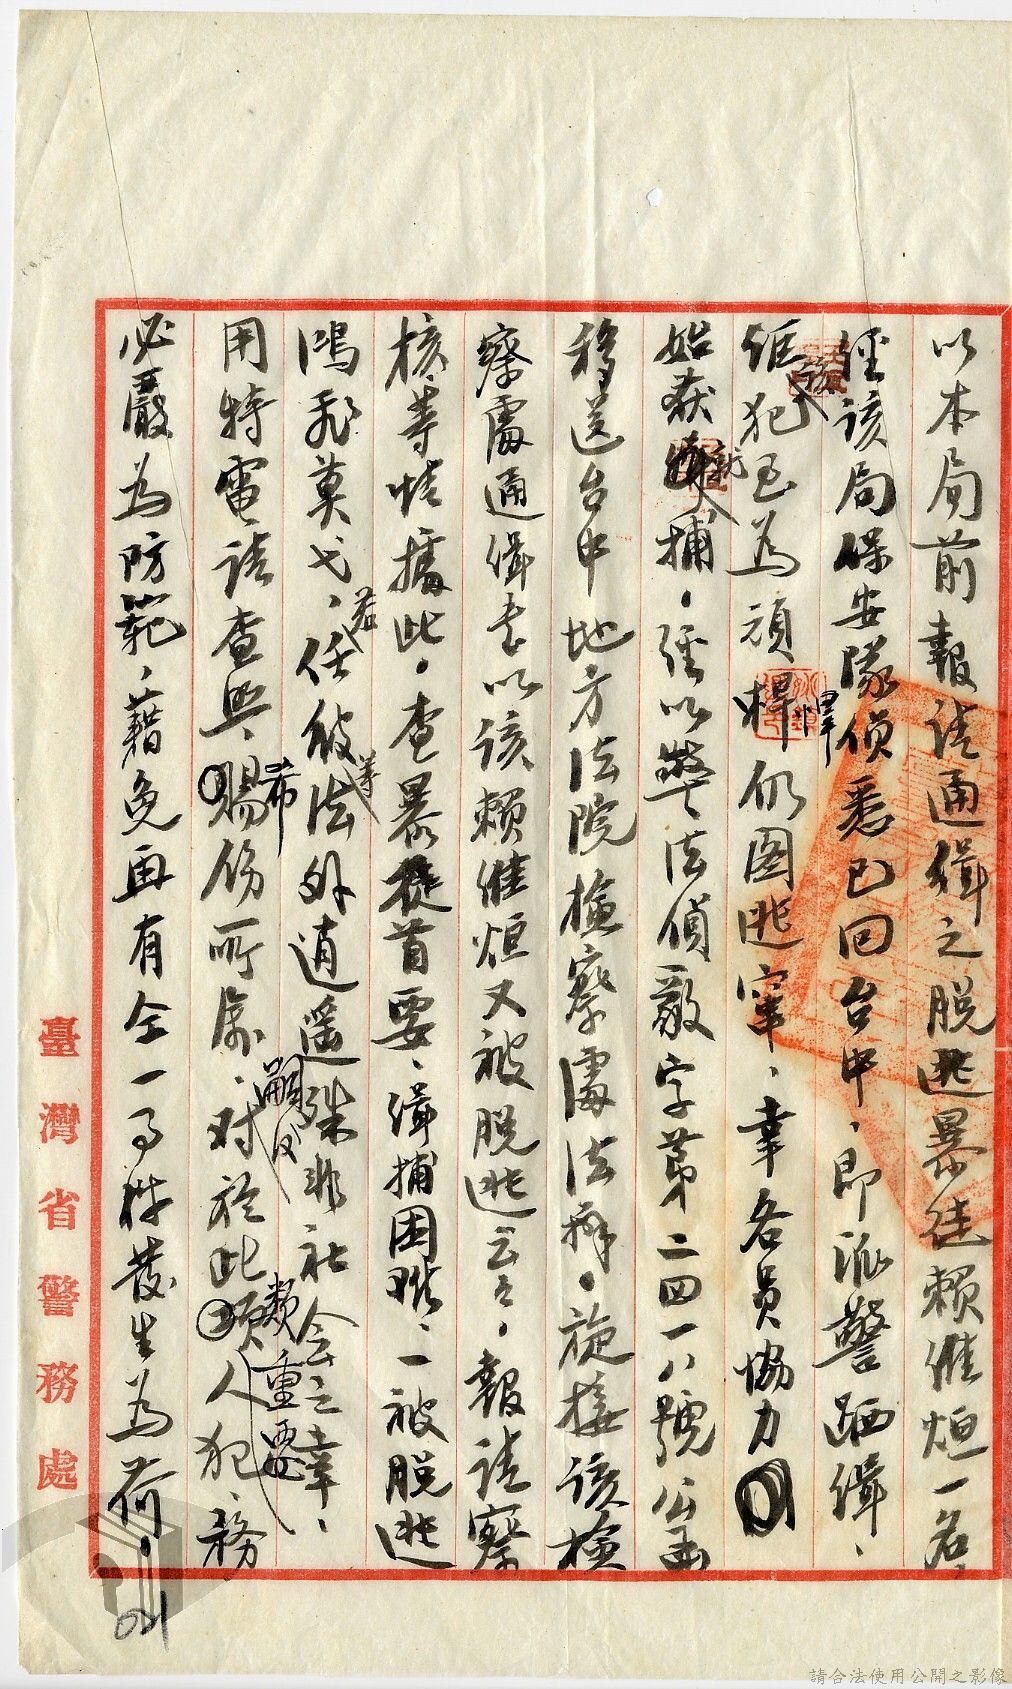 以本局前報請通緝之脫逃暴徒賴維烜一名,
經該局保安隊偵悉已回台中、即派警跴緝、
該犯至為頑悍仍圖逃竄、幸各員協力
始獲就捕。經以警法偵嚴字第二四一八號公函
移送台中地方法院檢察處法辦。旋接該檢
察處通緝書以該賴維烜又被脫逃云云。報請察
核等情據此。查暴徒首要、緝捕困難、一被脫逃
鴻飛莫弋、若任彼等法外逍遙殊非社會之幸、
用特電請查照、希賜飭所屬、嗣後對於此類重要人犯、務
必嚴為防範、藉免再有仝一事件發生為荷。
臺灣省警務處
021
請合法使用公開之影像